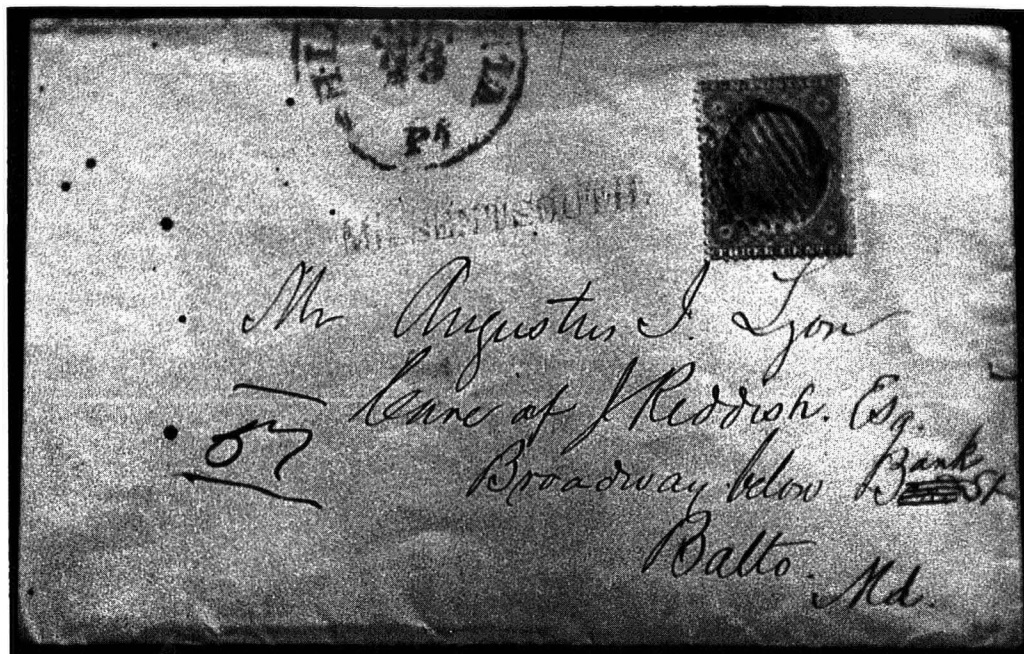 PA
MISSENT SOUTH.
Mr Augustus I. Lyon
Care of J Reddish. Esq.
Broadway below Bank St
Balto. Md.
57